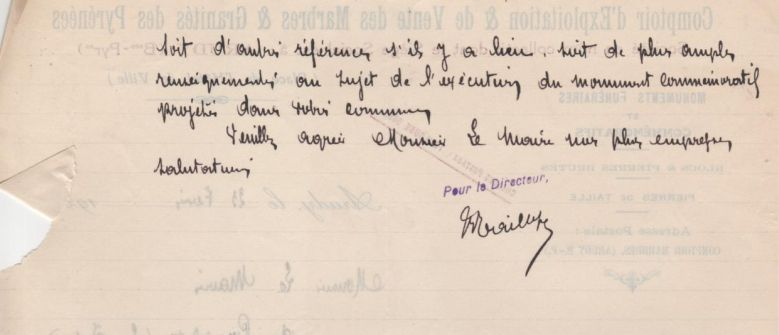 soit d'autres références s'il y a lieu, soit de plus amples
renseignements au sujet de l'exécution du monument commémoratif
projeté dans votre commune
Veuillez agréer Monsieur Le Maire nos plus empressées
salutations
Pour le Directeur,
Comptoir d'Exploitation & de Vente des Marbres & Granités des Pyrénées
MONUMENTS FUNÉRAIRES
ET
COMMÉMORATIFS
BLOCS & PIERRES BRUTES
PIERRES DE TAILLE
Adresse Postale:
COMPTOIR MARBRES, (ARUDY B.-P.)
Arudy, le 23
Monsieur Le Maire